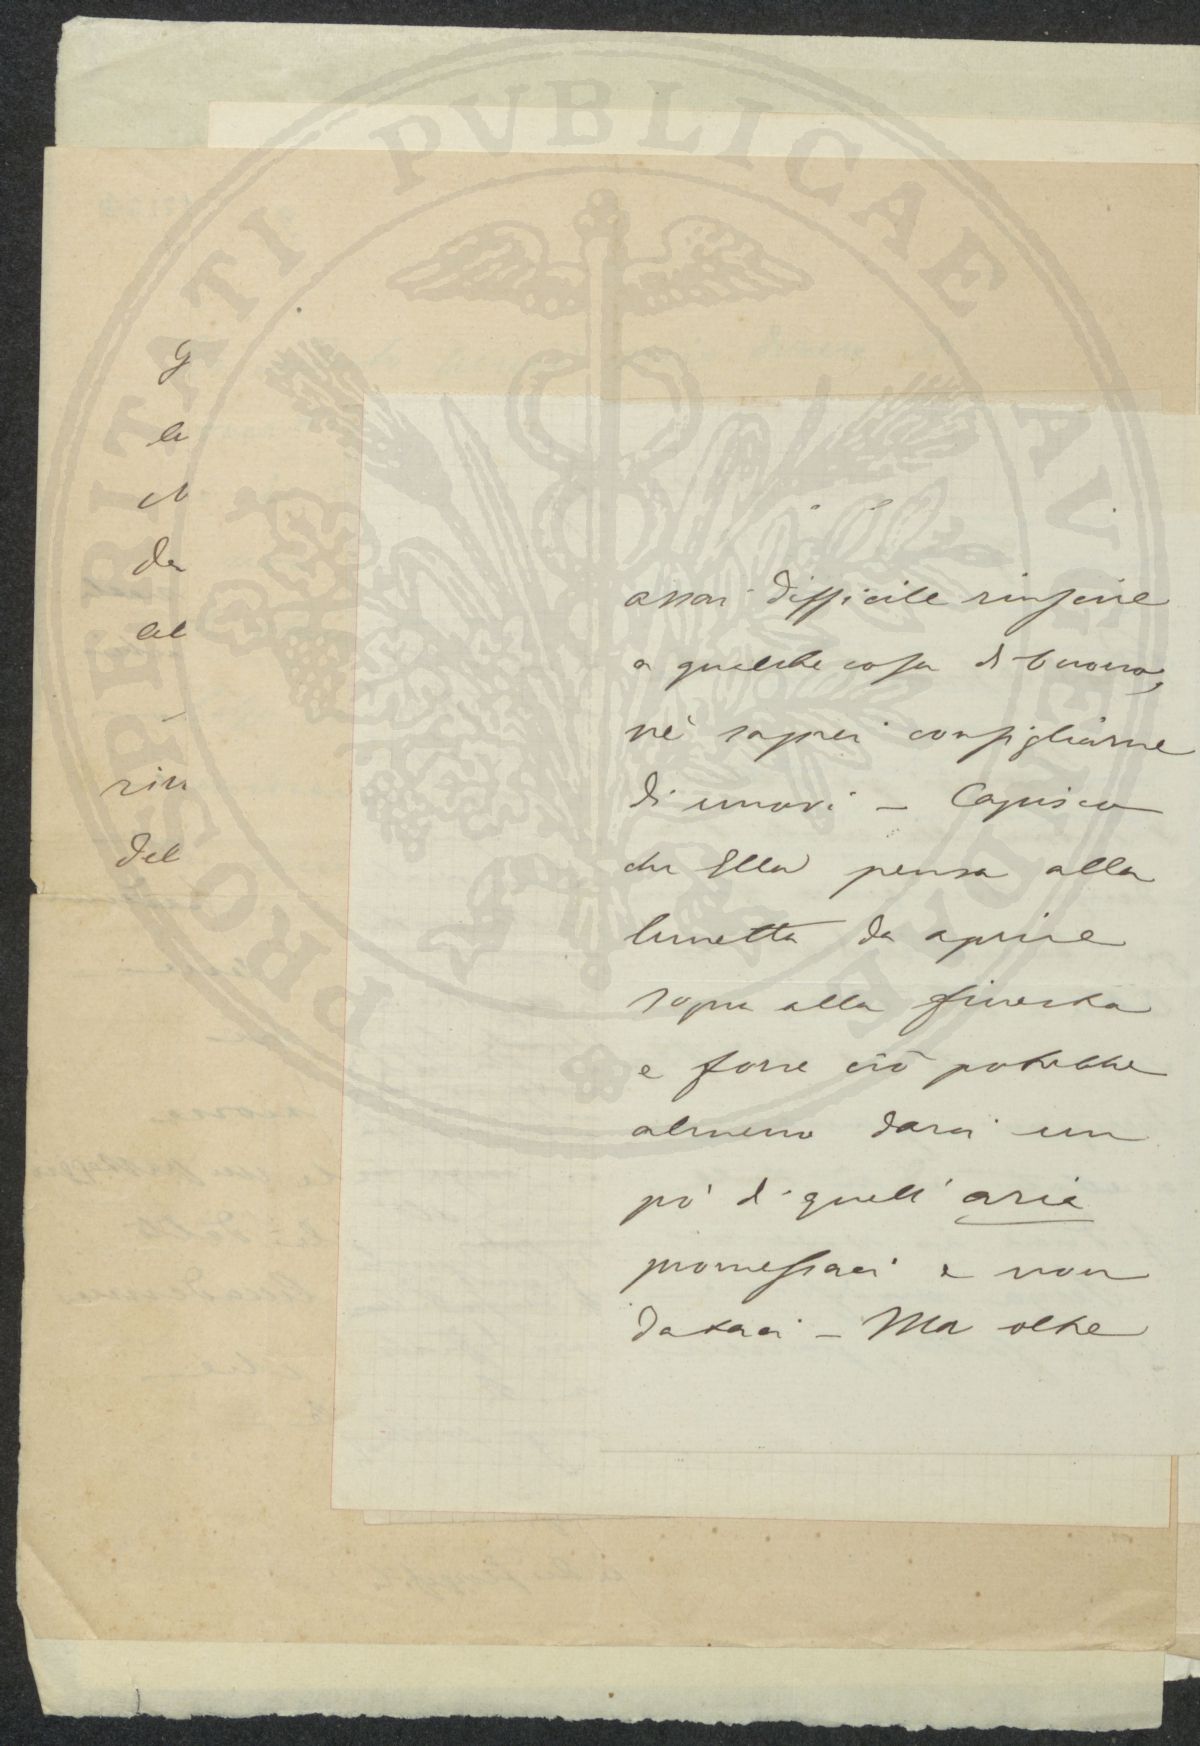 assai difficile riuscire
a qualche cosa di buono,
nè saprei consigliarne
di nuovi – Capisco
che Ella pensa alla
lunetta da aprire
sopra alla finestra
e forse ciò potrebbe
almeno darci un
po' di quell' aria
promessaci e non
dataci – Ma oltre
G
le
da
al
rin
del
PROSPERITATI PVBLICAE AVGENDAE